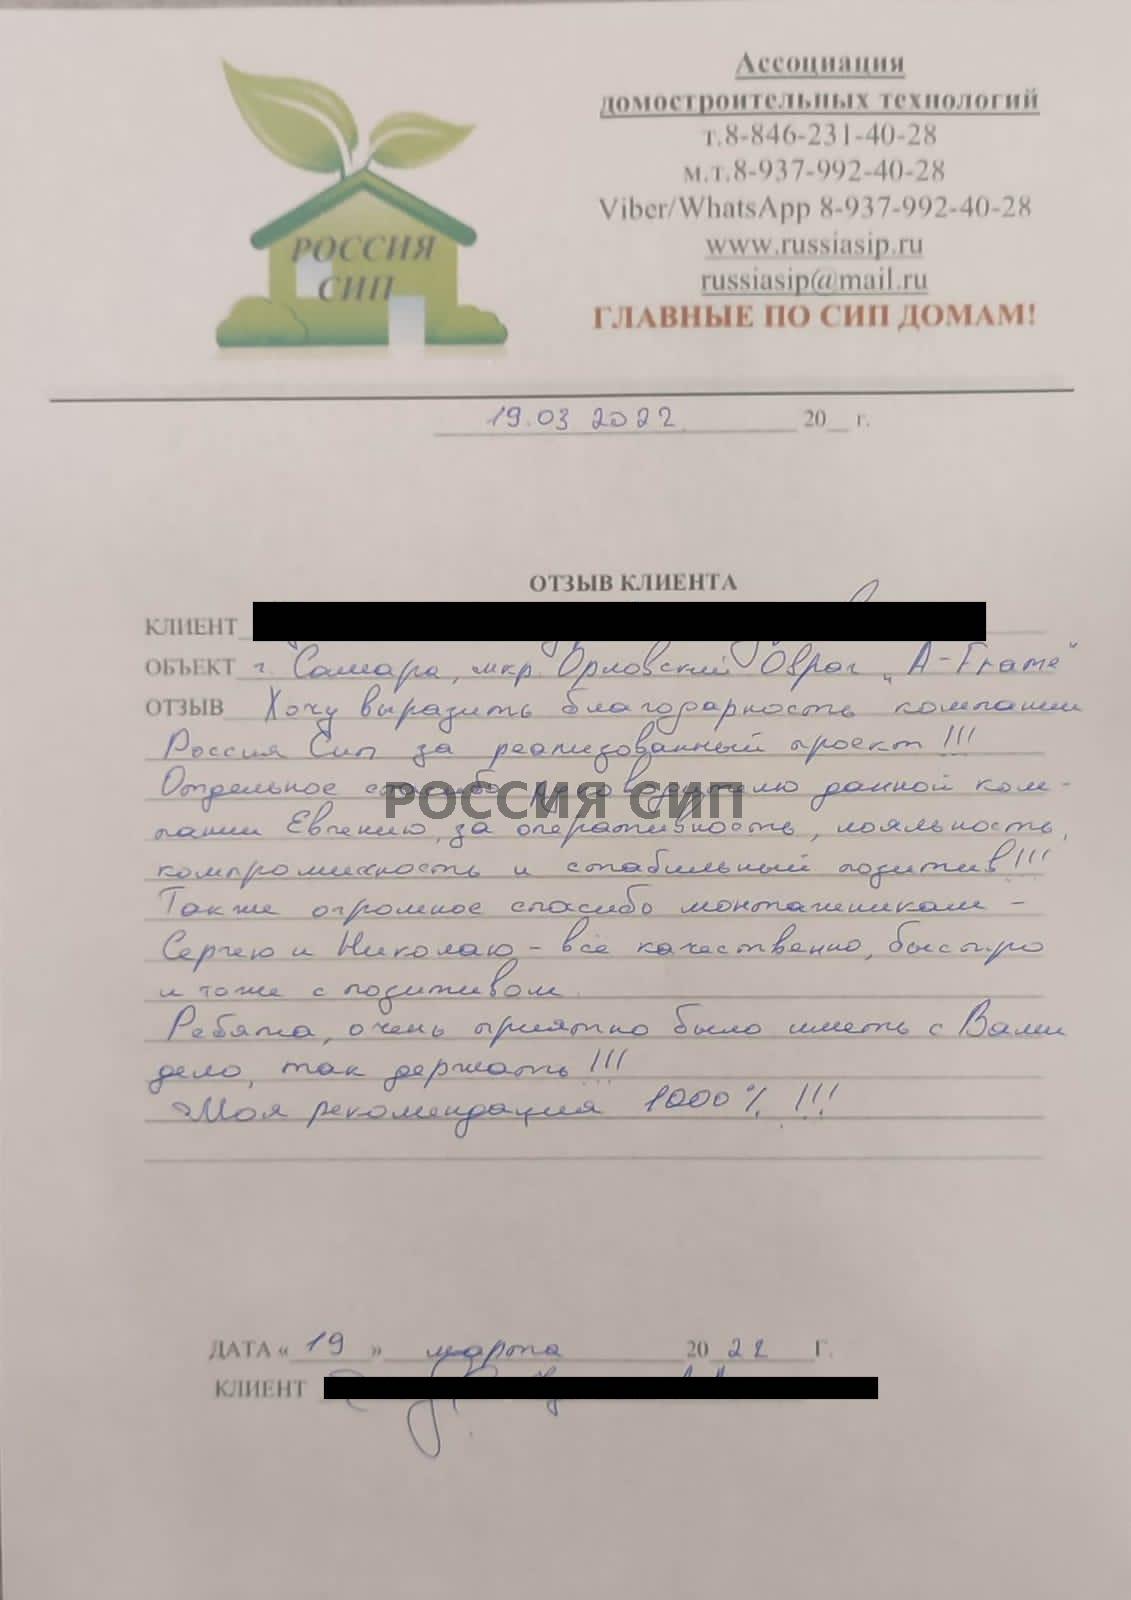 РОССИЯ
СИП
Ассоциация
домостроительных технологий
т.8-846-231-40-28
м.т.8-937-992-40-28
Viber/WhatsApp 8-937-992-40-28
www.russiasip.ru
russiasip@mail.ru
ГЛАВНЫЕ ПО СИП ДОМАМ!
19.03 2022 20__ г.
ОТЗЫВ КЛИЕНТА
КЛИЕНТ
ОБЪЕКТ г. Самара, мкр. Орловский Овраг „A-Frame"
ОТЗЫВ Хочу выразить благодарность компании
Россия Сип за реализованный проект!!!
Отдельное спасибо руководителю данной ком-
пании Евгению, за оперативность, лояльность,
компромисность и стабильный позитив!!!
РОССИЯ СИП
Также огромное спасибо монтажникам -
Сергею и Николаю - всё качественно, быстро
и тоже с позитивом.
Ребята, очень приятно было иметь с Вами
дело, так держать!!!
Моя рекомендация 1000% !!!
ДАТА « 19 » марта 20 22 Г.
КЛИЕНТ